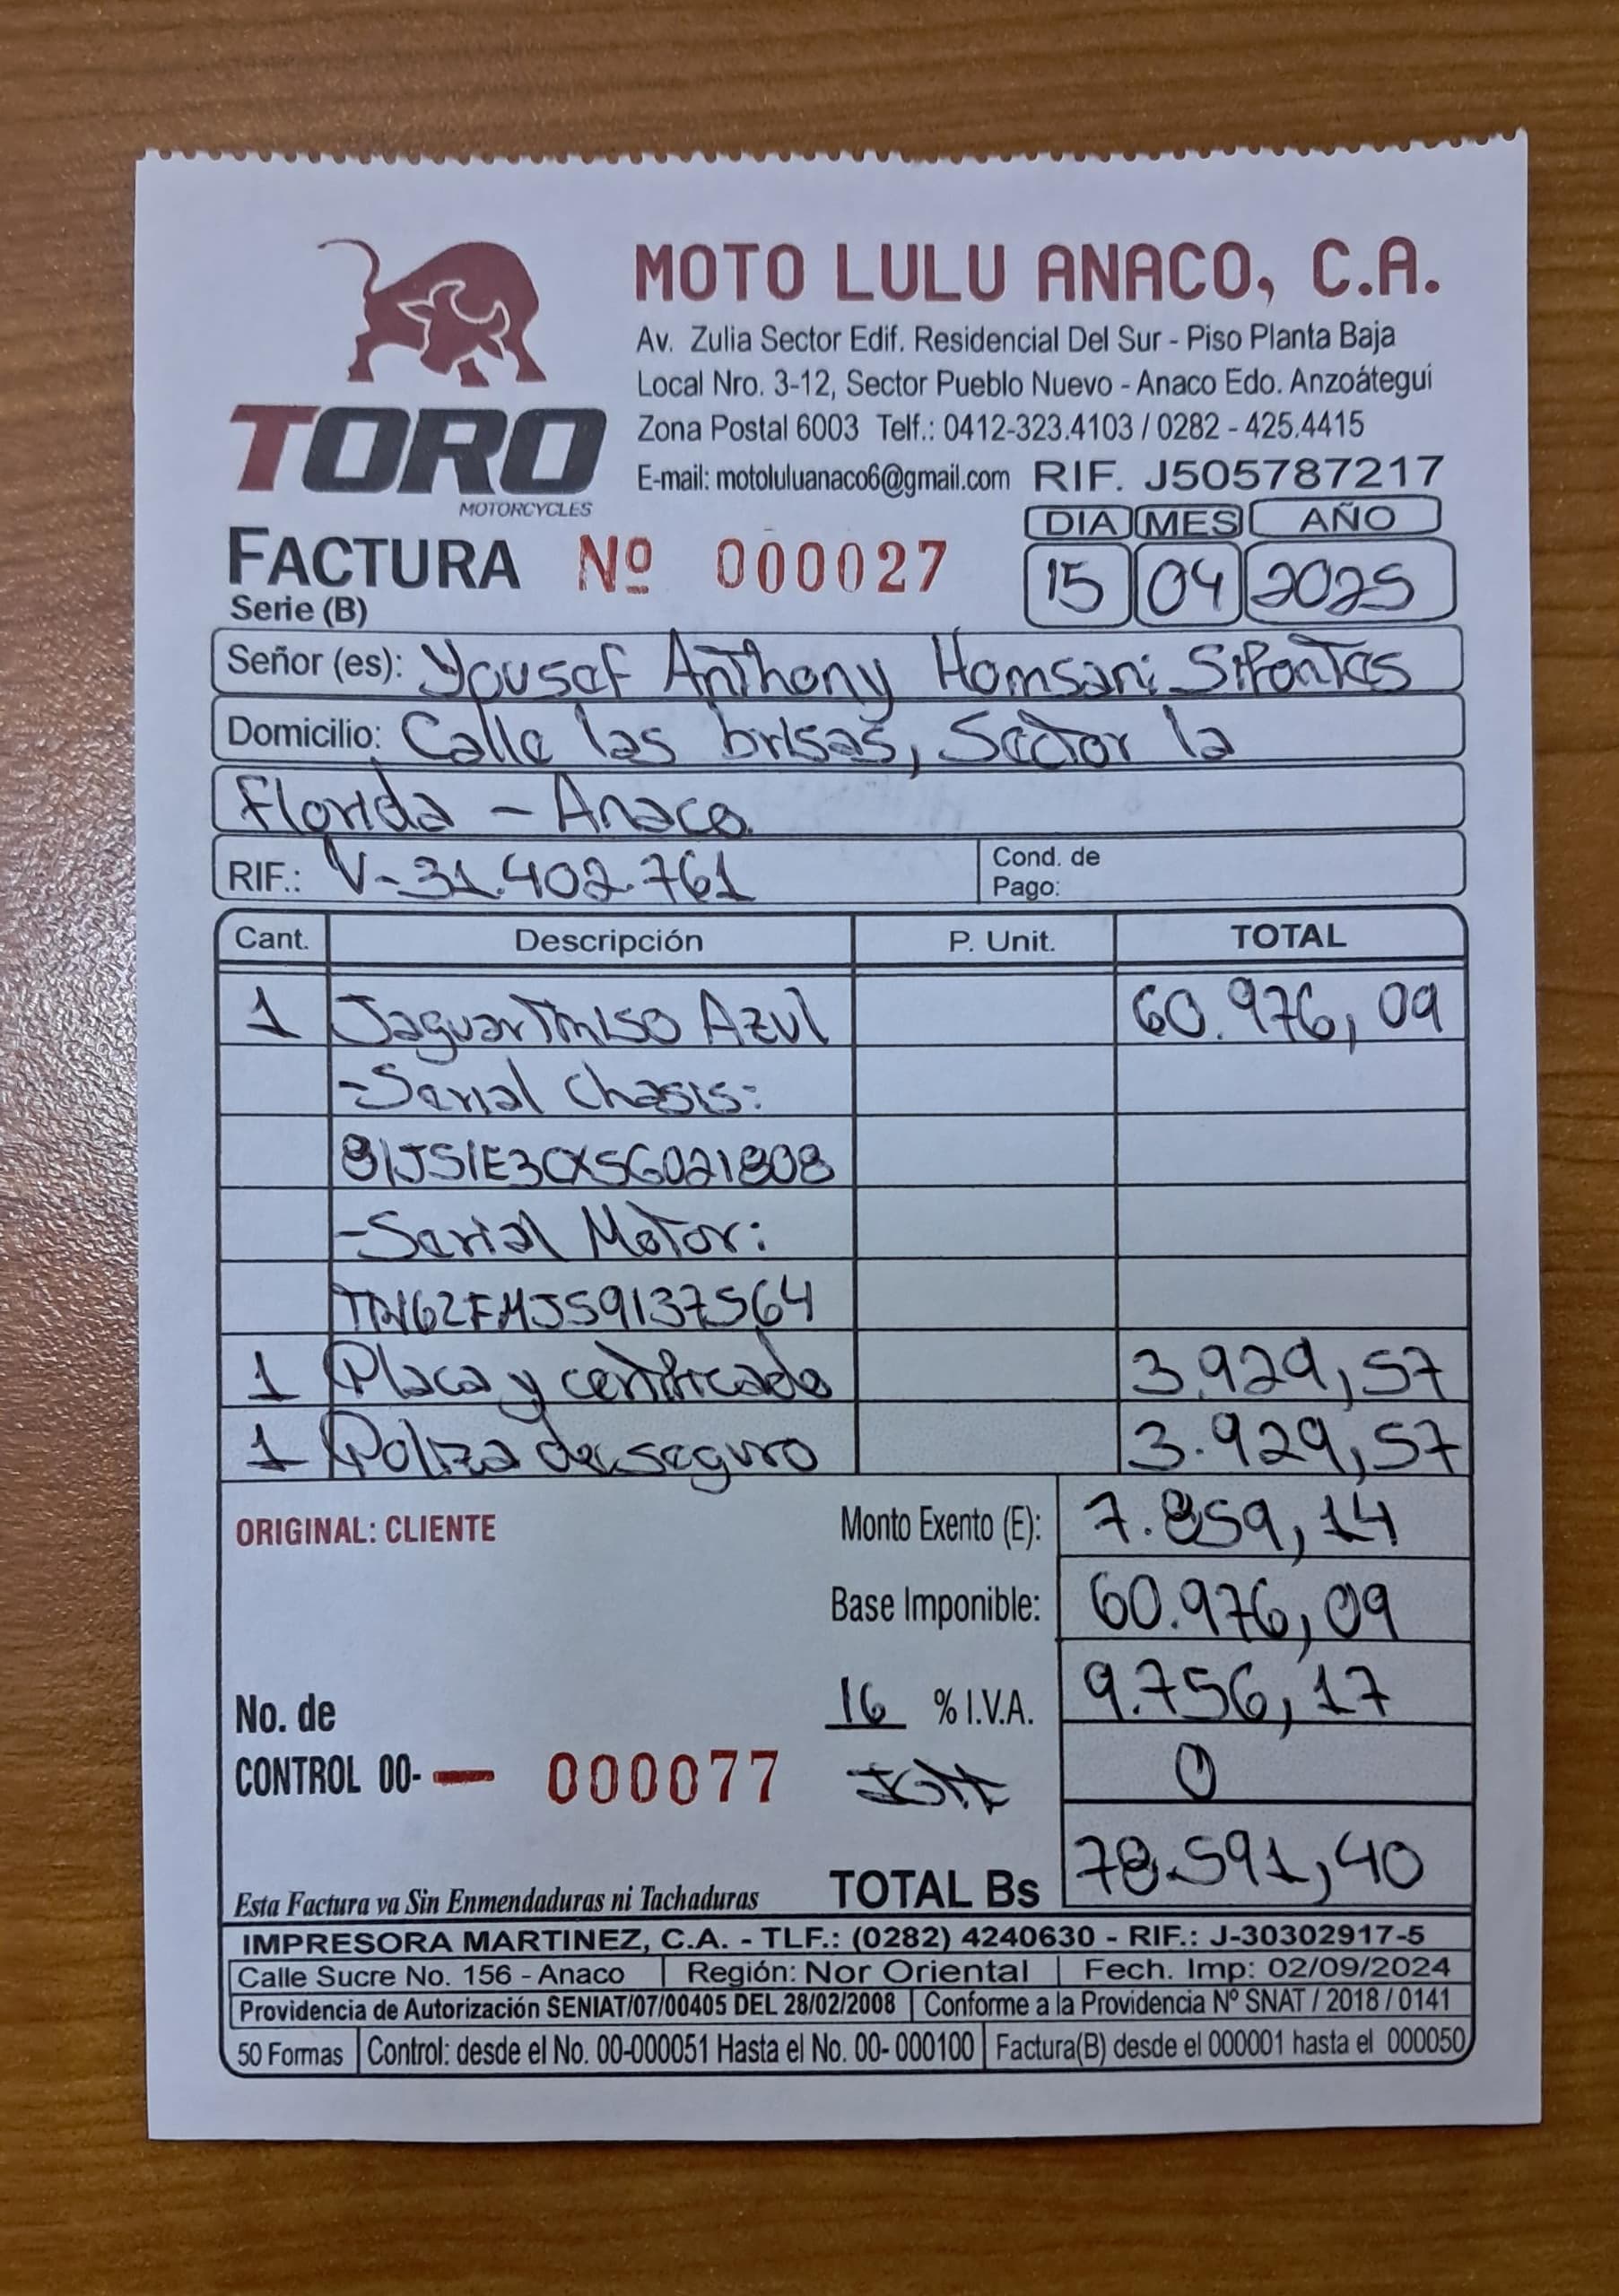 MOTO LULU ANACO, C.A.
Av. Zulia Sector Edif. Residencial Del Sur - Piso Planta Baja
Local Nro. 3-12, Sector Pueblo Nuevo - Anaco Edo. Anzoátegui
Zona Postal 6003 Telf.: 0412-323.4103 / 0282 - 425.4415
E-mail: motoluluanaco6@gmail.com RIF. J505787217
TORO
MOTORCYCLES
DIA MES AÑO
FACTURA Nº 000027 15 04 2025
Serie (B)
Señor (es): Yousef Anthony Homsani Sifontes
Domicilio: Calle las brisas, Sector la
Florida - Anaco
RIF.: V-31.402.761 Cond. de
Pago:
Cant. Descripción P. Unit. TOTAL
1 Jaguar Tm150 Azul 60.976,09
-Serial Chasis:
81JS1E3CXSG021808
-Serial Motor:
TN162FMJS9137564
1 Placa y certificado 3.929,57
1 Poliza de seguro 3.929,57
ORIGINAL: CLIENTE Monto Exento (E): 7.859,14
Base Imponible: 60.976,09
16 % I.V.A. 9.756,17
No. de
CONTROL 00- — 000077 0
Esta Factura va Sin Enmendaduras ni Tachaduras TOTAL Bs 78.591,40
IMPRESORA MARTINEZ, C.A. - TLF.: (0282) 4240630 - RIF.: J-30302917-5
Calle Sucre No. 156 - Anaco Región: Nor Oriental Fech. Imp: 02/09/2024
Providencia de Autorización SENIAT/07/00405 DEL 28/02/2008 Conforme a la Providencia Nº SNAT / 2018 / 0141
50 Formas Control: desde el No. 00-000051 Hasta el No. 00- 000100 Factura(B) desde el 000001 hasta el 000050